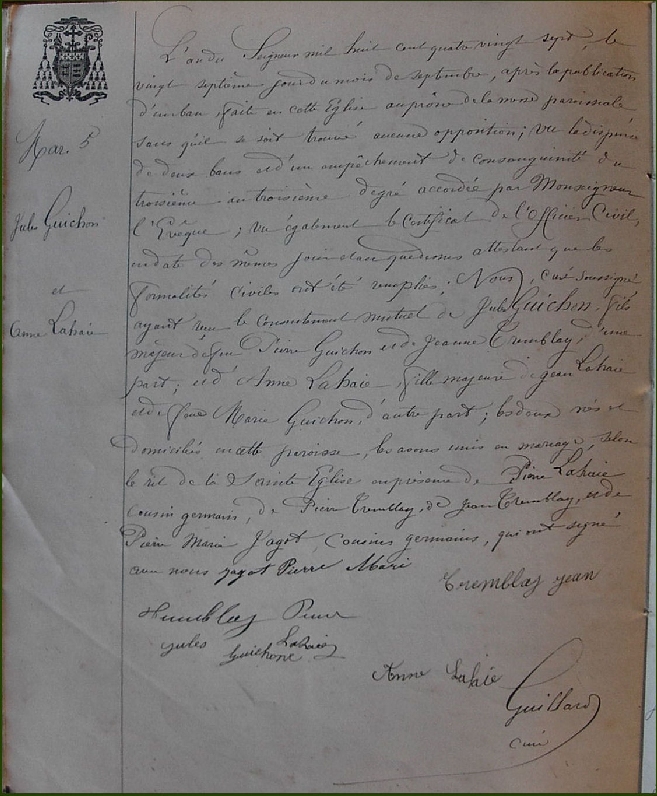 Mar. 5
Jules Guichon
et
Anne Lahaie
L'an du Seigneur mil huit cent quatre vingt sept, le
vingt septème jour du mois de septembre, après la publication
d'un ban, faite en cette Eglise au prône de la messe paroissiale
sans qu'il se soit trouvé aucune opposition; vu la dispense
de deux bans et d'un empêchement de consanguinité du
troisième au troisième degré accordée par Monseigneur
l'Evêque; vu également le certificat de l'Officier Civil,
en date des mêmes jour et an que dessus attestant que les
formalités civiles ont été remplies; Nous, curé soussigné
ayant reçu le consentement mutuel de Jules Guichon, fils
majeur de feu Pierre Guichon et de Jeanne Tremblay, d'une
part; et d'Anne Lahaie, fille majeure de jean Lahaie
et de feue Marie Guichon, d'autre part; les deux nés et
domiciliés en cette paroisse, les avons unis en mariage, selon
le rit de la Sainte Eglise en présence de Pierre Lahaie
cousin germain, de Pierre Tremblay, de Jean Tremblay, et de
Pierre Marie Jagot, cousins germains, qui ont signé
avec nous jagot Pierre Mari
Tremblay jean
Tremblay Pierre
jules Guichon Lahaie
Anne Lahaie
Guillard
curé